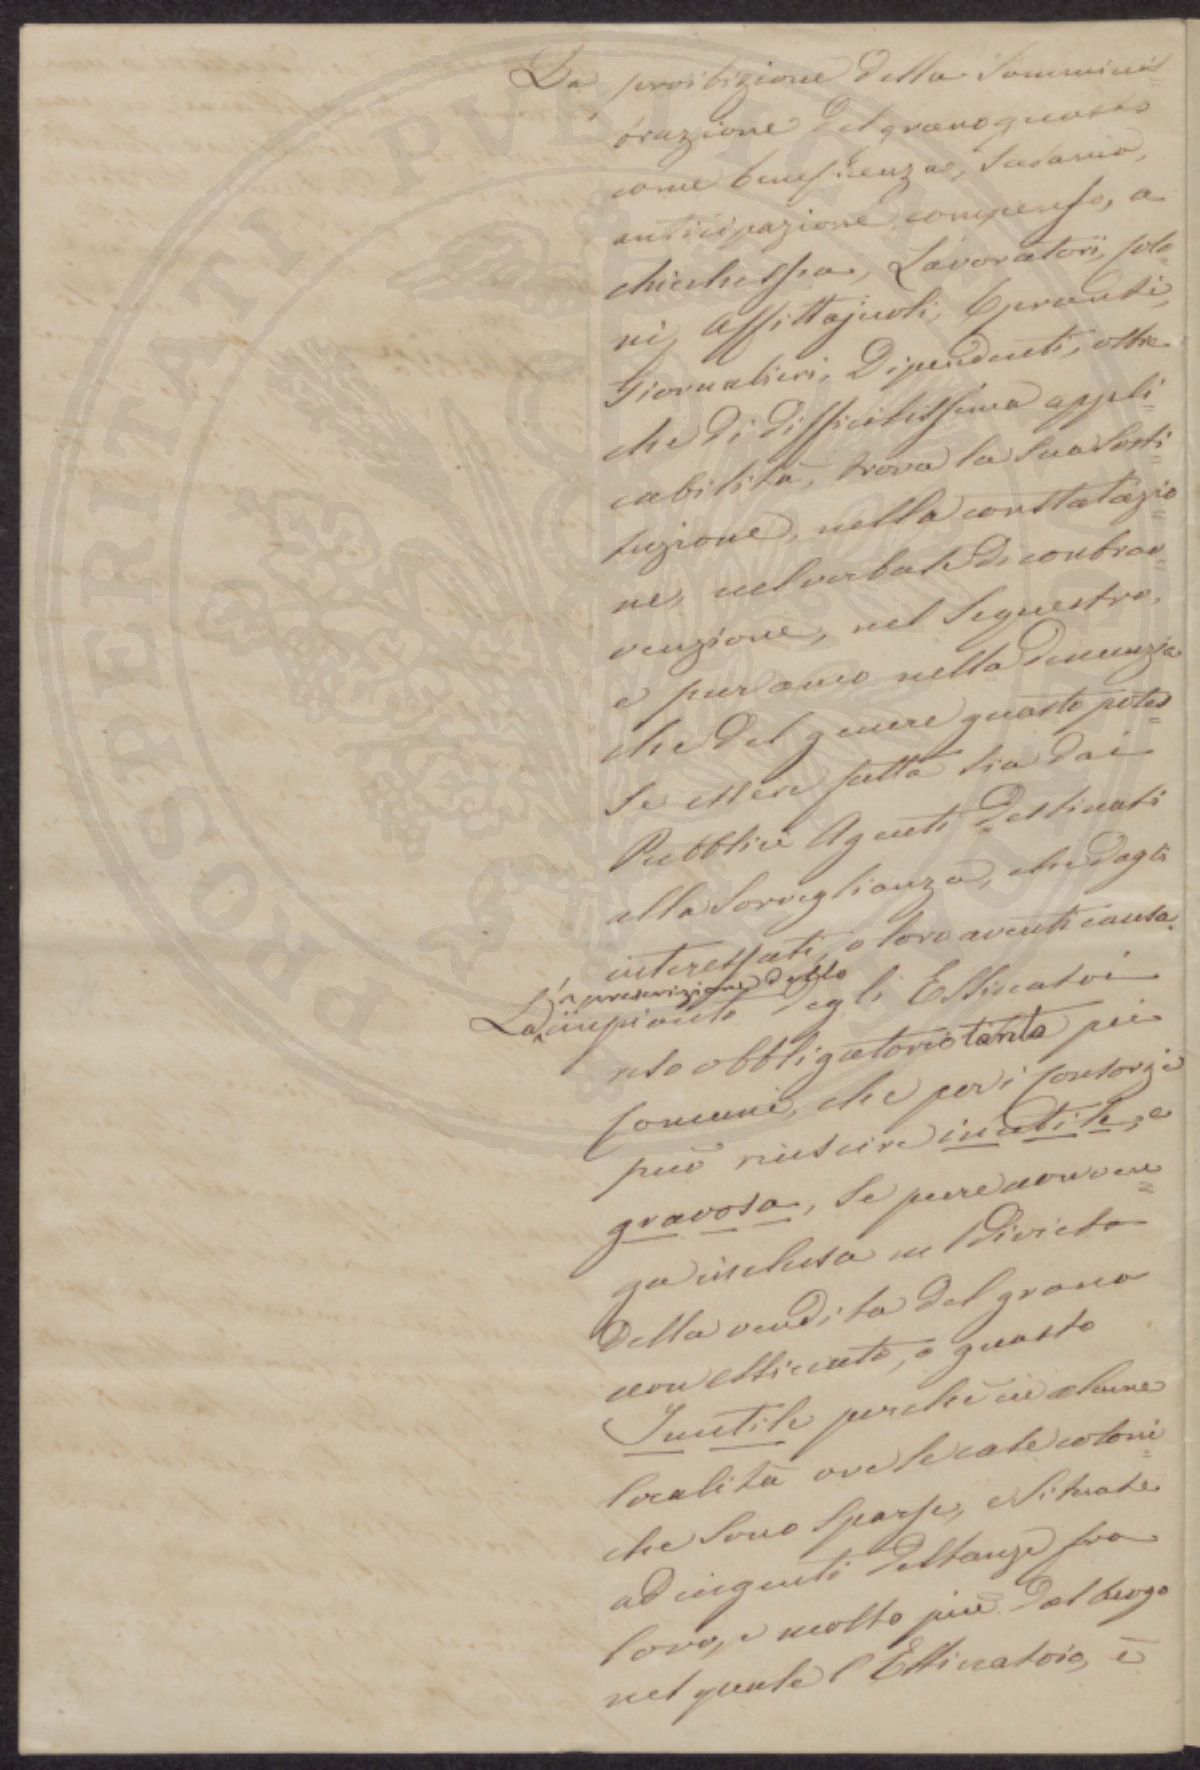 La proibizione della Sommini=
strazione del grano guasto
come beneficenza, Salario,
anticipazione compenso, a
chicchessia, Lavoratori, colo=
ni, Affittajuoli, Operanti,
Giornalieri, Dipendenti, oltre
che di difficilissima appli=
cabilità, trova la Sua Sosti=
tuzione, nella constatazio=
ne, nel verbale di contrav=
venzione, nel Sequestro,
e pur anco nella denunzia
che del genere guasto potes=
se essere fatta sia dai
Pubblici Agenti Destinati
alla Sorveglianza, che dagli
interessati, o loro aventi causa.
La prescrizione dello
impianto degli Essicatoi
reso obbligatorio tanto pei
Comuni, che per i Consorzi
può riuscire inutile, e
gravosa, Se pure non ven=
ga inclusa nel Divieto
della vendita del grano
non essicato, o guasto
Inutile perchè in alcune
località ove le case coloni=
che Sono Sparse, e Situate
ad ingenti distanze fra
loro, e molto più dal luogo
nel quale l'Essicatoio, è
PROSPERITATI PUBLICAE